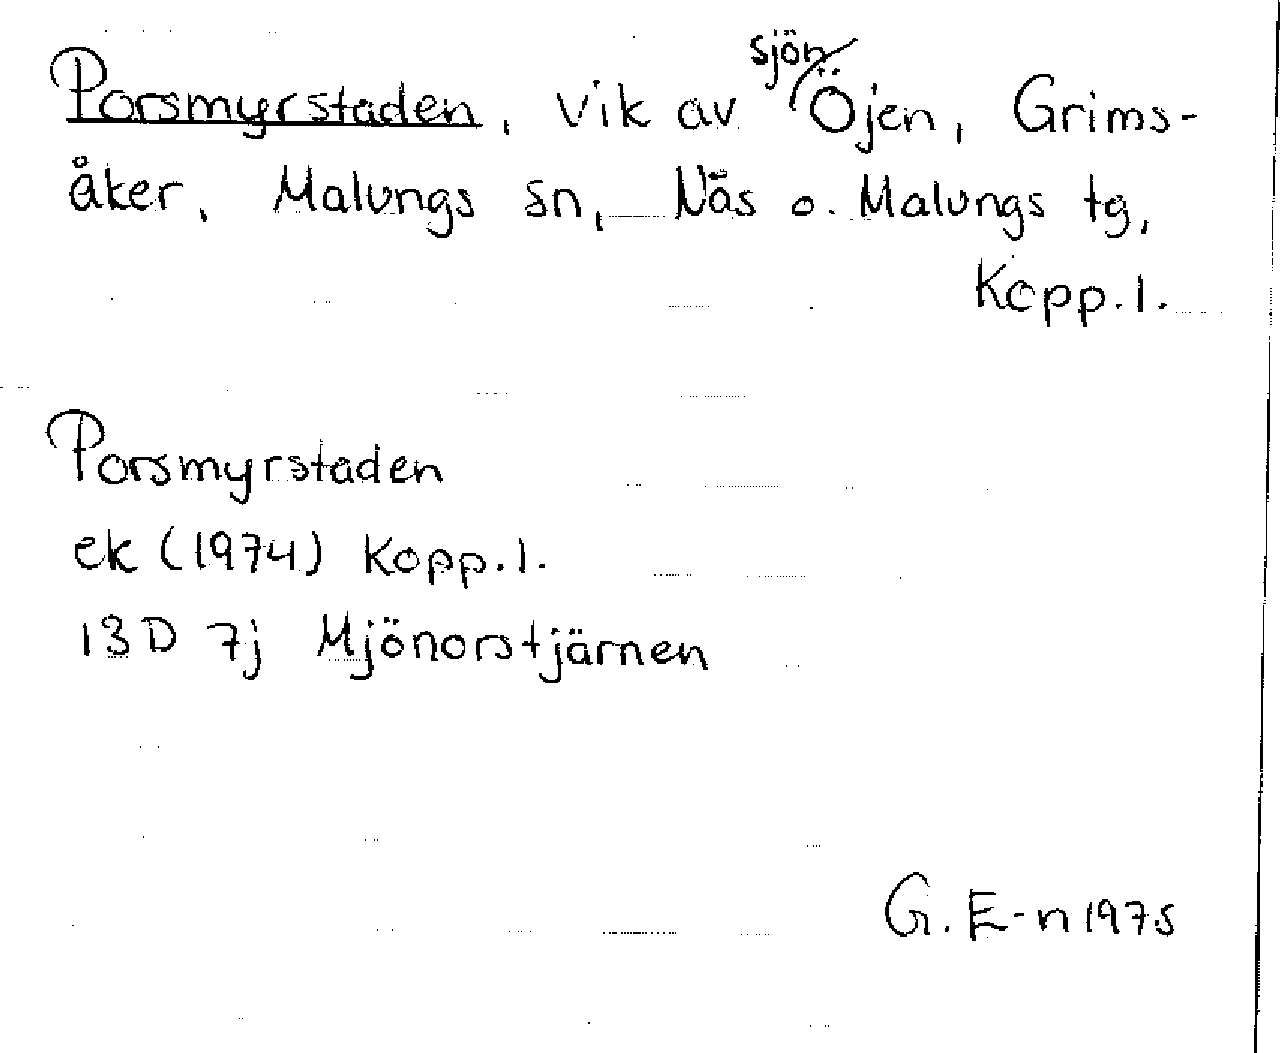 Porsmyrstaden, vik av sjön Öjen, Grims-
åker, Malungs sn, Näs o. Malungs tg,
Kopp.l.
Porsmyrstaden
ek (1974) Kopp.l.
13D 7j Mjönorstjärnen
G. E-n 1975